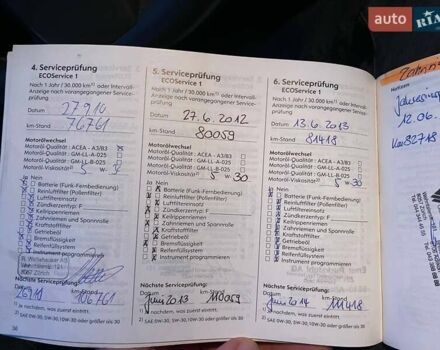 auto RIA
4. Serviceprüfung
ECOService 1
Nach 1 Jahr / 30.000 km¹⁾ oder Intervall-
Anzeige nach vorangegangener Service-
Datum 27.9.10
km-Stand 76761
Motorölwechsel
Motoröl-Qualität: ACEA - A3/B3
Motoröl-Qualität: GM-LL-A-025
Motoröl-Qualität: GM-LL-B-025
Motoröl-Viskosität²⁾
Ja Nein
Batterie (Funk-Fernbedienung)
Reinluftfilter (Pollenfilter)
Luftfiltereinsatz
Zündkerzentyp: F
Keilrippenriemen
Zahnriemen und Spannrolle
Kraftstofffilter
Getriebeöl
Bremsflüssigkeit
Reifenfüllsystem
Instrument programmieren
Nächste Serviceprüfung:
Datum km-Stand
106761
1) je nachdem, was zuerst eintritt.
2) SAE 0W-30, 5W-30, 10W-30 oder größer als 30
36
5. Serviceprüfung
ECOService 1
Nach 1 Jahr / 30.000 km¹⁾ oder Intervall-
Anzeige nach vorangegangener Service-
Datum 27.6.2012
km-Stand 80059
Motorölwechsel
Motoröl-Qualität: ACEA - A3/B3
Motoröl-Qualität: GM-LL-A-025
Motoröl-Qualität: GM-LL-B-025
Motoröl-Viskosität²⁾ 5 W- 30
Ja Nein
Batterie (Funk-Fernbedienung)
Reinluftfilter (Pollenfilter)
Luftfiltereinsatz
Zündkerzentyp: F
Keilrippenriemen
Zahnriemen und Spannrolle
Kraftstofffilter
Getriebeöl
Bremsflüssigkeit
Reifenfüllsystem
Instrument programmieren
Nächste Serviceprüfung:
Datum km-Stand
Juni 2013 110059
1) je nachdem, was zuerst eintritt.
2) SAE 0W-30, 5W-30, 10W-30 oder größer als 30
6. Serviceprüfung
ECOService 1
Nach 1 Jahr / 30.000 km¹⁾ oder Intervall-
Anzeige nach vorangegangener Service-
Datum 13.6.2013
km-Stand 81418
Motorölwechsel
Motoröl-Qualität: ACEA - A3/B3
Motoröl-Qualität: GM-LL-A-025
Motoröl-Qualität: GM-LL-B-025
Motoröl-Viskosität²⁾ 5 W- 30
Ja Nein
Batterie (Funk-Fernbedienung)
Reinluftfilter (Pollenfilter)
Luftfiltereinsatz
Zündkerzentyp: F
Keilrippenriemen
Zahnriemen und Spannrolle
Kraftstofffilter
Getriebeöl
Bremsflüssigkeit
Reifenfüllsystem
Instrument programmieren
Nächste Serviceprüfung:
Datum km-Stand
Juni 2014 111418
1) je nachdem, was zuerst eintritt.
2) SAE 0W-30, 5W-30, 10W-30 oder größer als 30
Notizen
12.06.
82718